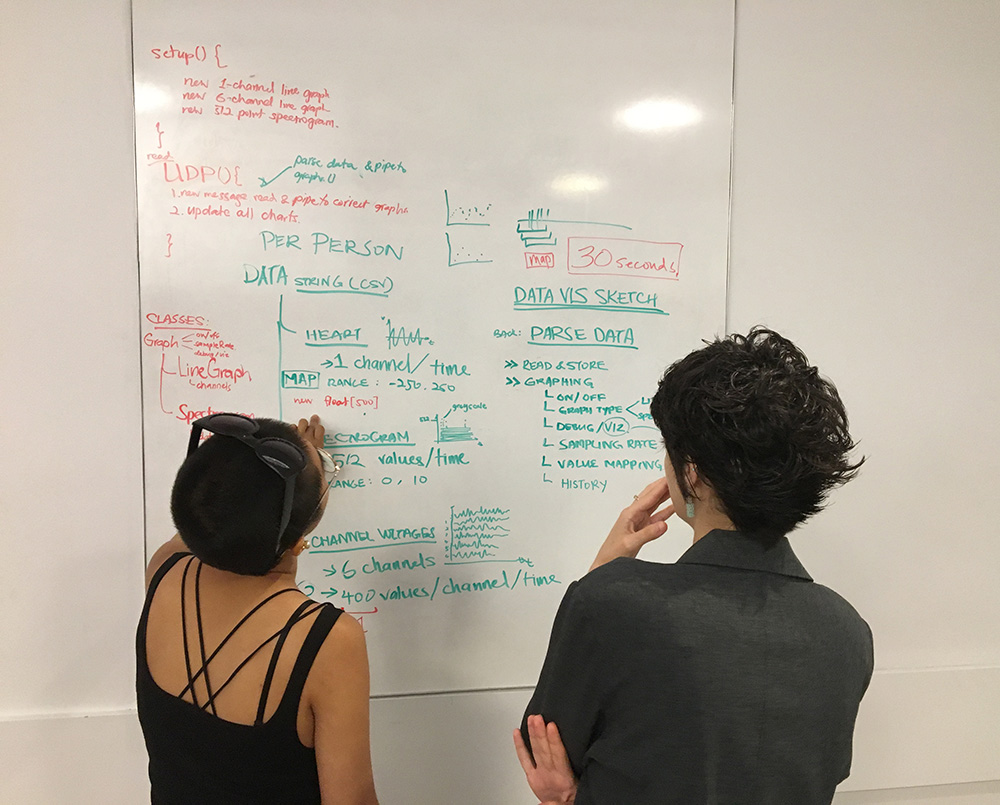 setup() {
new 1-channel line graph
new 6-channel line graph
new 512 point spectrogram.
}
read
UDP() {
parse data & pipe to
graph()
1. new message read & pipe to correct graph.
2. update all charts.
}
PER PERSON
DATA STRING (CSV)
HEART
→ 1 channel/time
MAP RANGE: -250.250
new float[500]
grayscale
512
512 values/time
RANGE: 0, 10
CHANNEL VOLTAGES
→ 6 channels
→ 400 values/channel/time
CLASSES:
Graph
on/off
sampleRate
debug/viz
LineGraph
channels
map
30 seconds
DATA VIS SKETCH
BACK: PARSE DATA
>> READ & STORE
>> GRAPHING
ON/OFF
GRAPH TYPE
DEBUG/VIZ
SAMPLING RATE
VALUE MAPPING
HISTORY